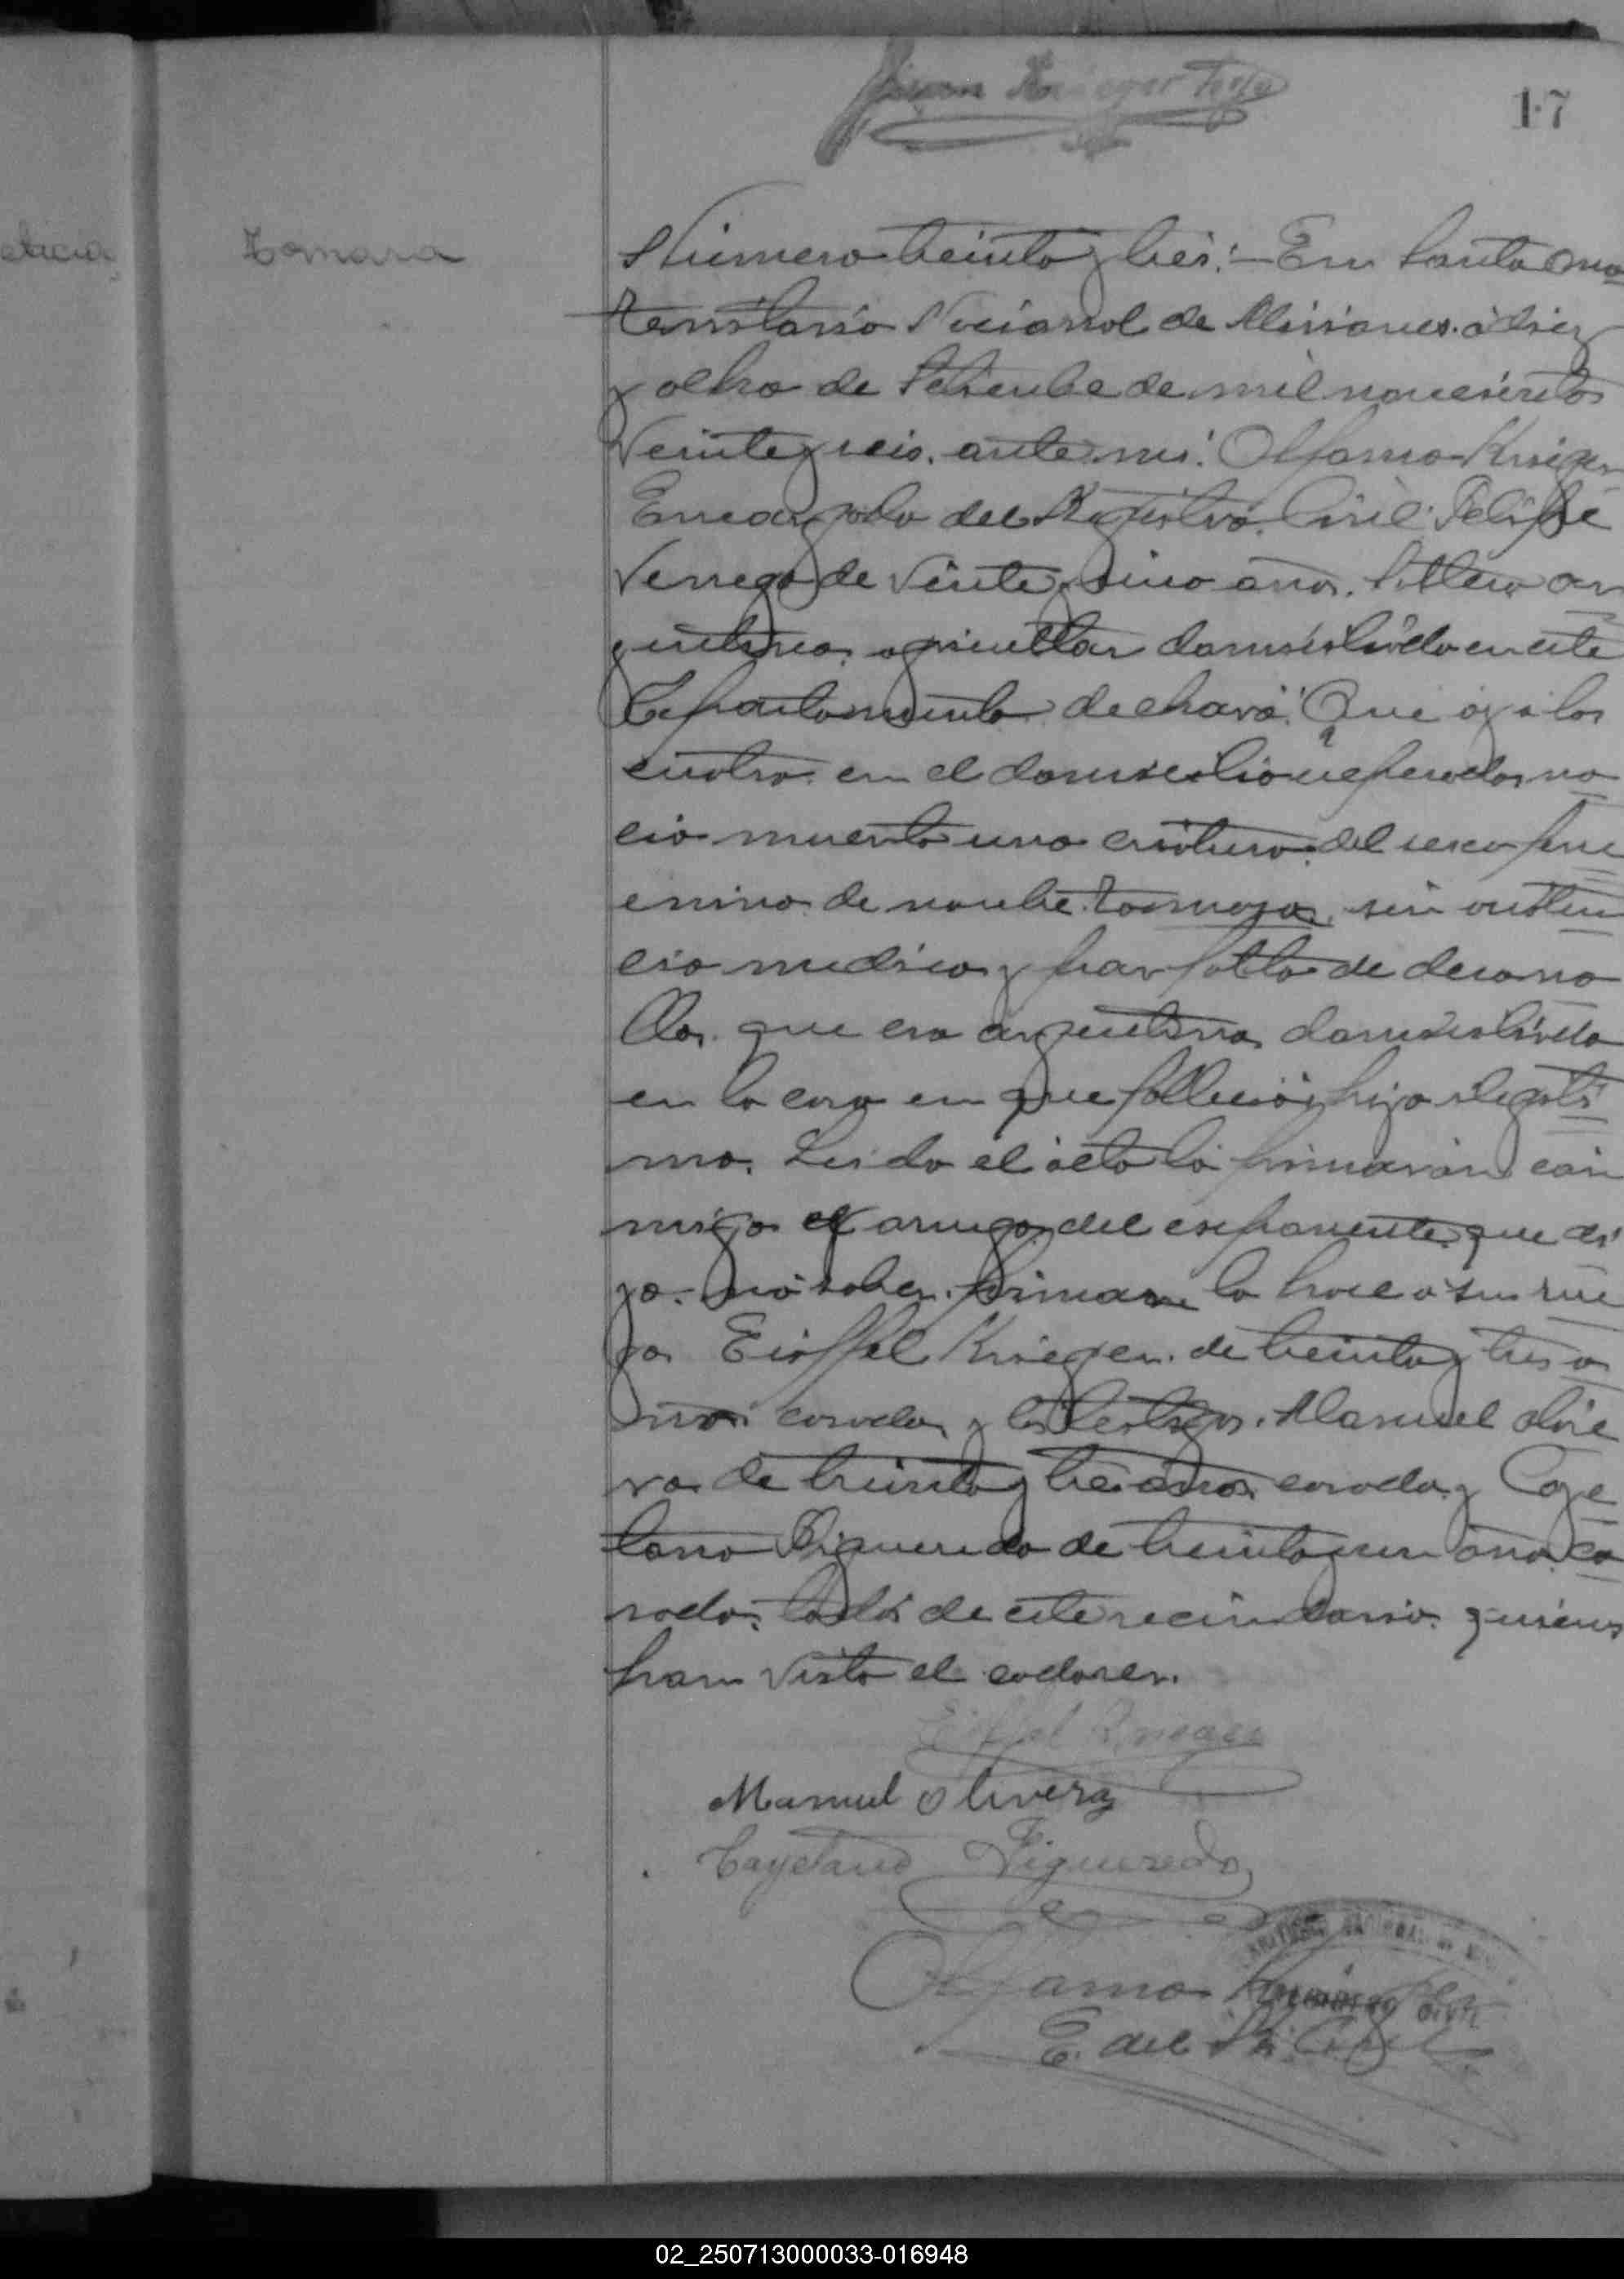 17
Tomasa
Número treinta y tres: En Santa Ana
territorio Nacional de Misiones á diez
y ocho de Setiembre de mil novecientos
Veinte y seis. ante mi: Olfamo Krieger
Encargado del Registro Civil: Felipe
de veinte y cinco años. soltero ar
gentino, agricultor domiciliado en este
Departamento declaró: Que oy a las
cuatro en el domicilio referedo, na
cio muerto una criatura del sexo feme
enino de nombre Tomasa sin asisten
cia medica y por falta de desarro
llo. que era argentina domiciliada
en la casa en que fallecio, hija ilegiti
ma. Leida el acta la firmarón con
migo el amigo del esponente que di
jo no saber firmar lo hace a su rue
go Eiffel Krieger de treinta y tres a
ños casado, y los testigos. Manuel Olive
ra de treinta y tres años casado y Caye
tano Figueredo de treinta y un años ca
sado, todos de este vecindario quienes
han visto el cadaver.
Eiffel Krieger
Manuel Olivera
Cayetano Figueredo
Olfamo Krieger
E. del R. Civil
REGISTRO CIVIL
02_250713000033-016948